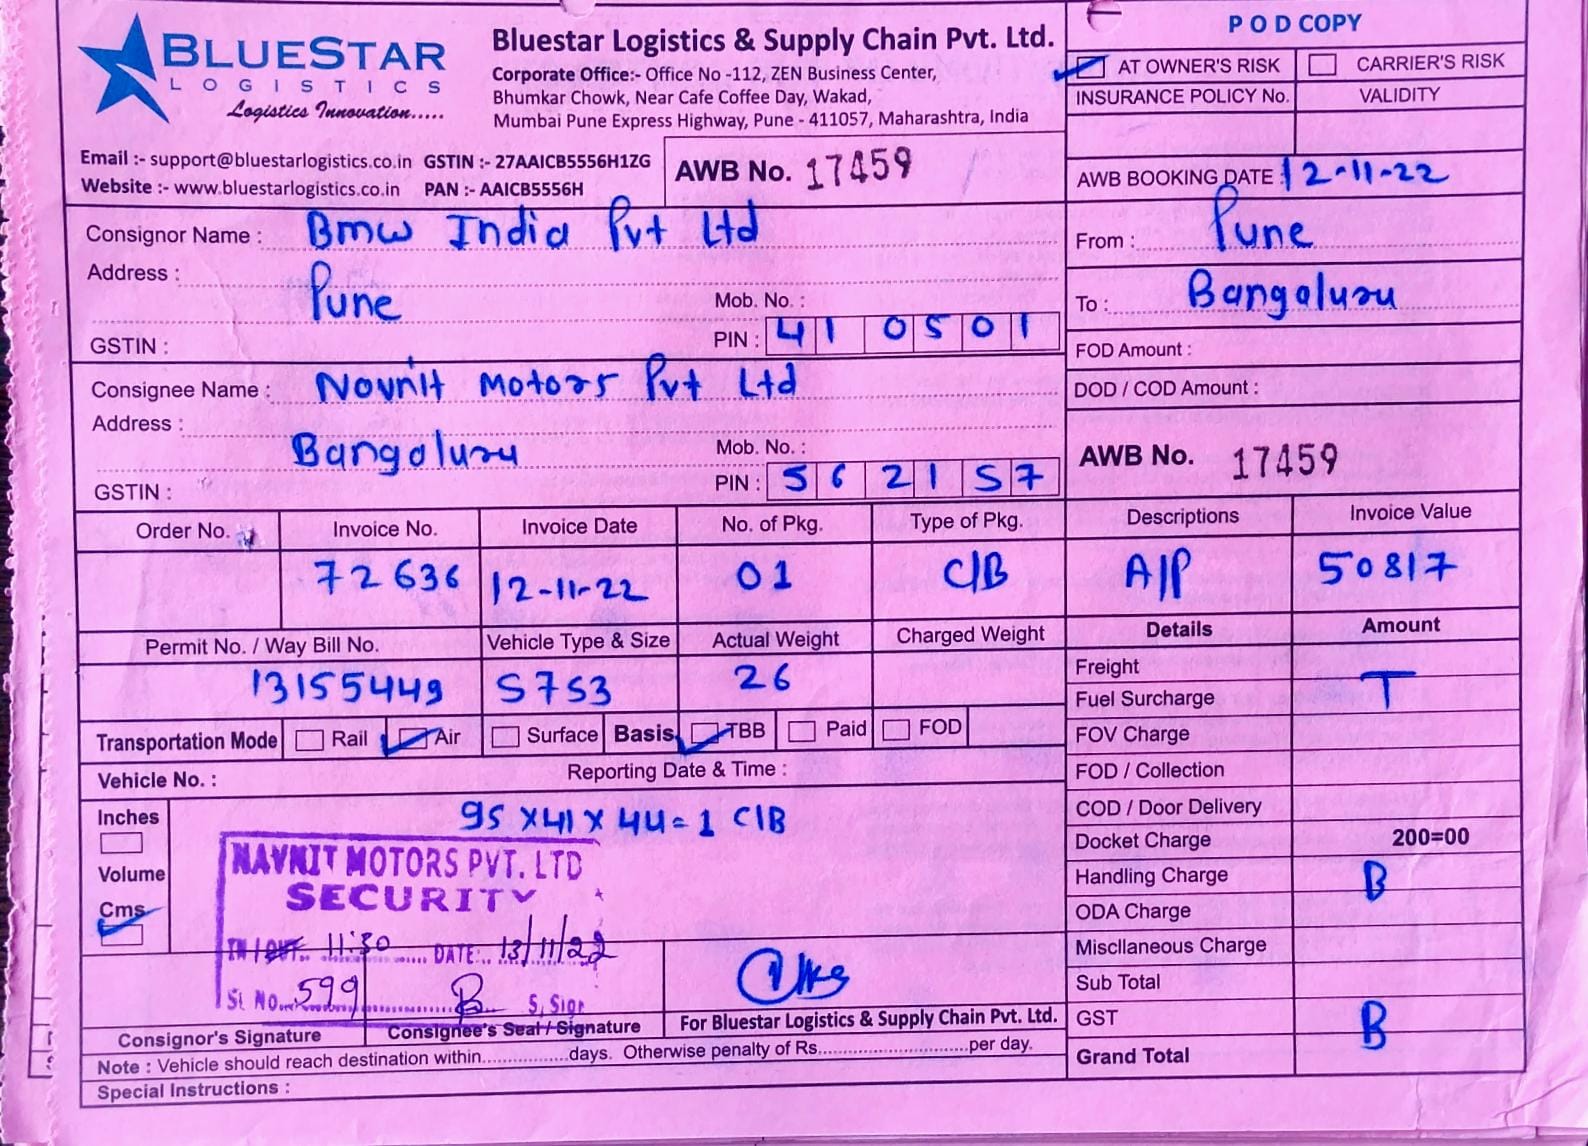 BLUESTAR
LOGISTICS
Logistics Innovation.....
Bluestar Logistics & Supply Chain Pvt. Ltd.
Corporate Office:- Office No -112, ZEN Business Center,
Bhumkar Chowk, Near Cafe Coffee Day, Wakad,
Mumbai Pune Express Highway, Pune - 411057, Maharashtra, India
Email :- support@bluestarlogistics.co.in GSTIN :- 27AAICB5556H1ZG
Website :- www.bluestarlogistics.co.in PAN :- AAICB5556H
AWB No. 17459
POD COPY
AT OWNER'S RISK CARRIER'S RISK
INSURANCE POLICY No. VALIDITY
AWB BOOKING DATE : 12-11-22
Consignor Name : Bmw India Pvt Ltd
Address :
Pune
Mob. No. :
GSTIN :
PIN : 410501
From : Pune
To : Bangaluru
FOD Amount :
DOD / COD Amount :
Consignee Name : Navnit Motors Pvt Ltd
Address :
Bangaluru
Mob. No. :
GSTIN :
PIN : 562157
AWB No. 17459
Order No. Invoice No. Invoice Date No. of Pkg. Type of Pkg. Descriptions Invoice Value
72636 12-11-22 01 C/B A/P 50817
Permit No. / Way Bill No. Vehicle Type & Size Actual Weight Charged Weight
13155449 S7S3 26
Transportation Mode Rail Air Surface Basis TBB Paid FOD
Vehicle No. : Reporting Date & Time :
Inches
Volume
Cms
95 x 41 x 44 = 1 C/B
NAVNIT MOTORS PVT. LTD
SECURITY
IN/OUT.. 11:30 DATE:.. 13/11/22
Sl. No. 599 B S, Sign
Consignor's Signature Consignee's Seal / Signature For Bluestar Logistics & Supply Chain Pvt. Ltd.
Note : Vehicle should reach destination within................days. Otherwise penalty of Rs............................per day.
Special Instructions :
Details Amount
Freight
Fuel Surcharge T
FOV Charge
FOD / Collection
COD / Door Delivery
Docket Charge 200=00
Handling Charge B
ODA Charge
Miscllaneous Charge
Sub Total
GST B
Grand Total